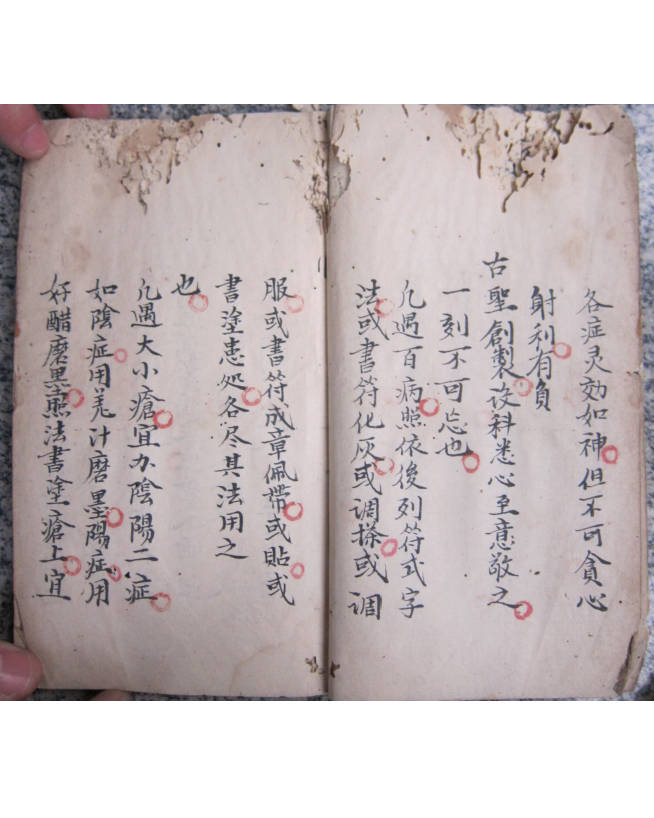 各症灵効如神但不可貪心
射利有負
古聖創製設科悉心至意敬之
一刻不可忘也
凡遇百病照依後列符式字
法或書符化灰或調搽或調
服或書符成章佩帶或貼或
書塗患処各尽其法用之
也
凡遇大小瘡宜办陰陽二症
如陰症用羌汁磨墨陽症用
好醋磨墨照法書塗瘡上宜